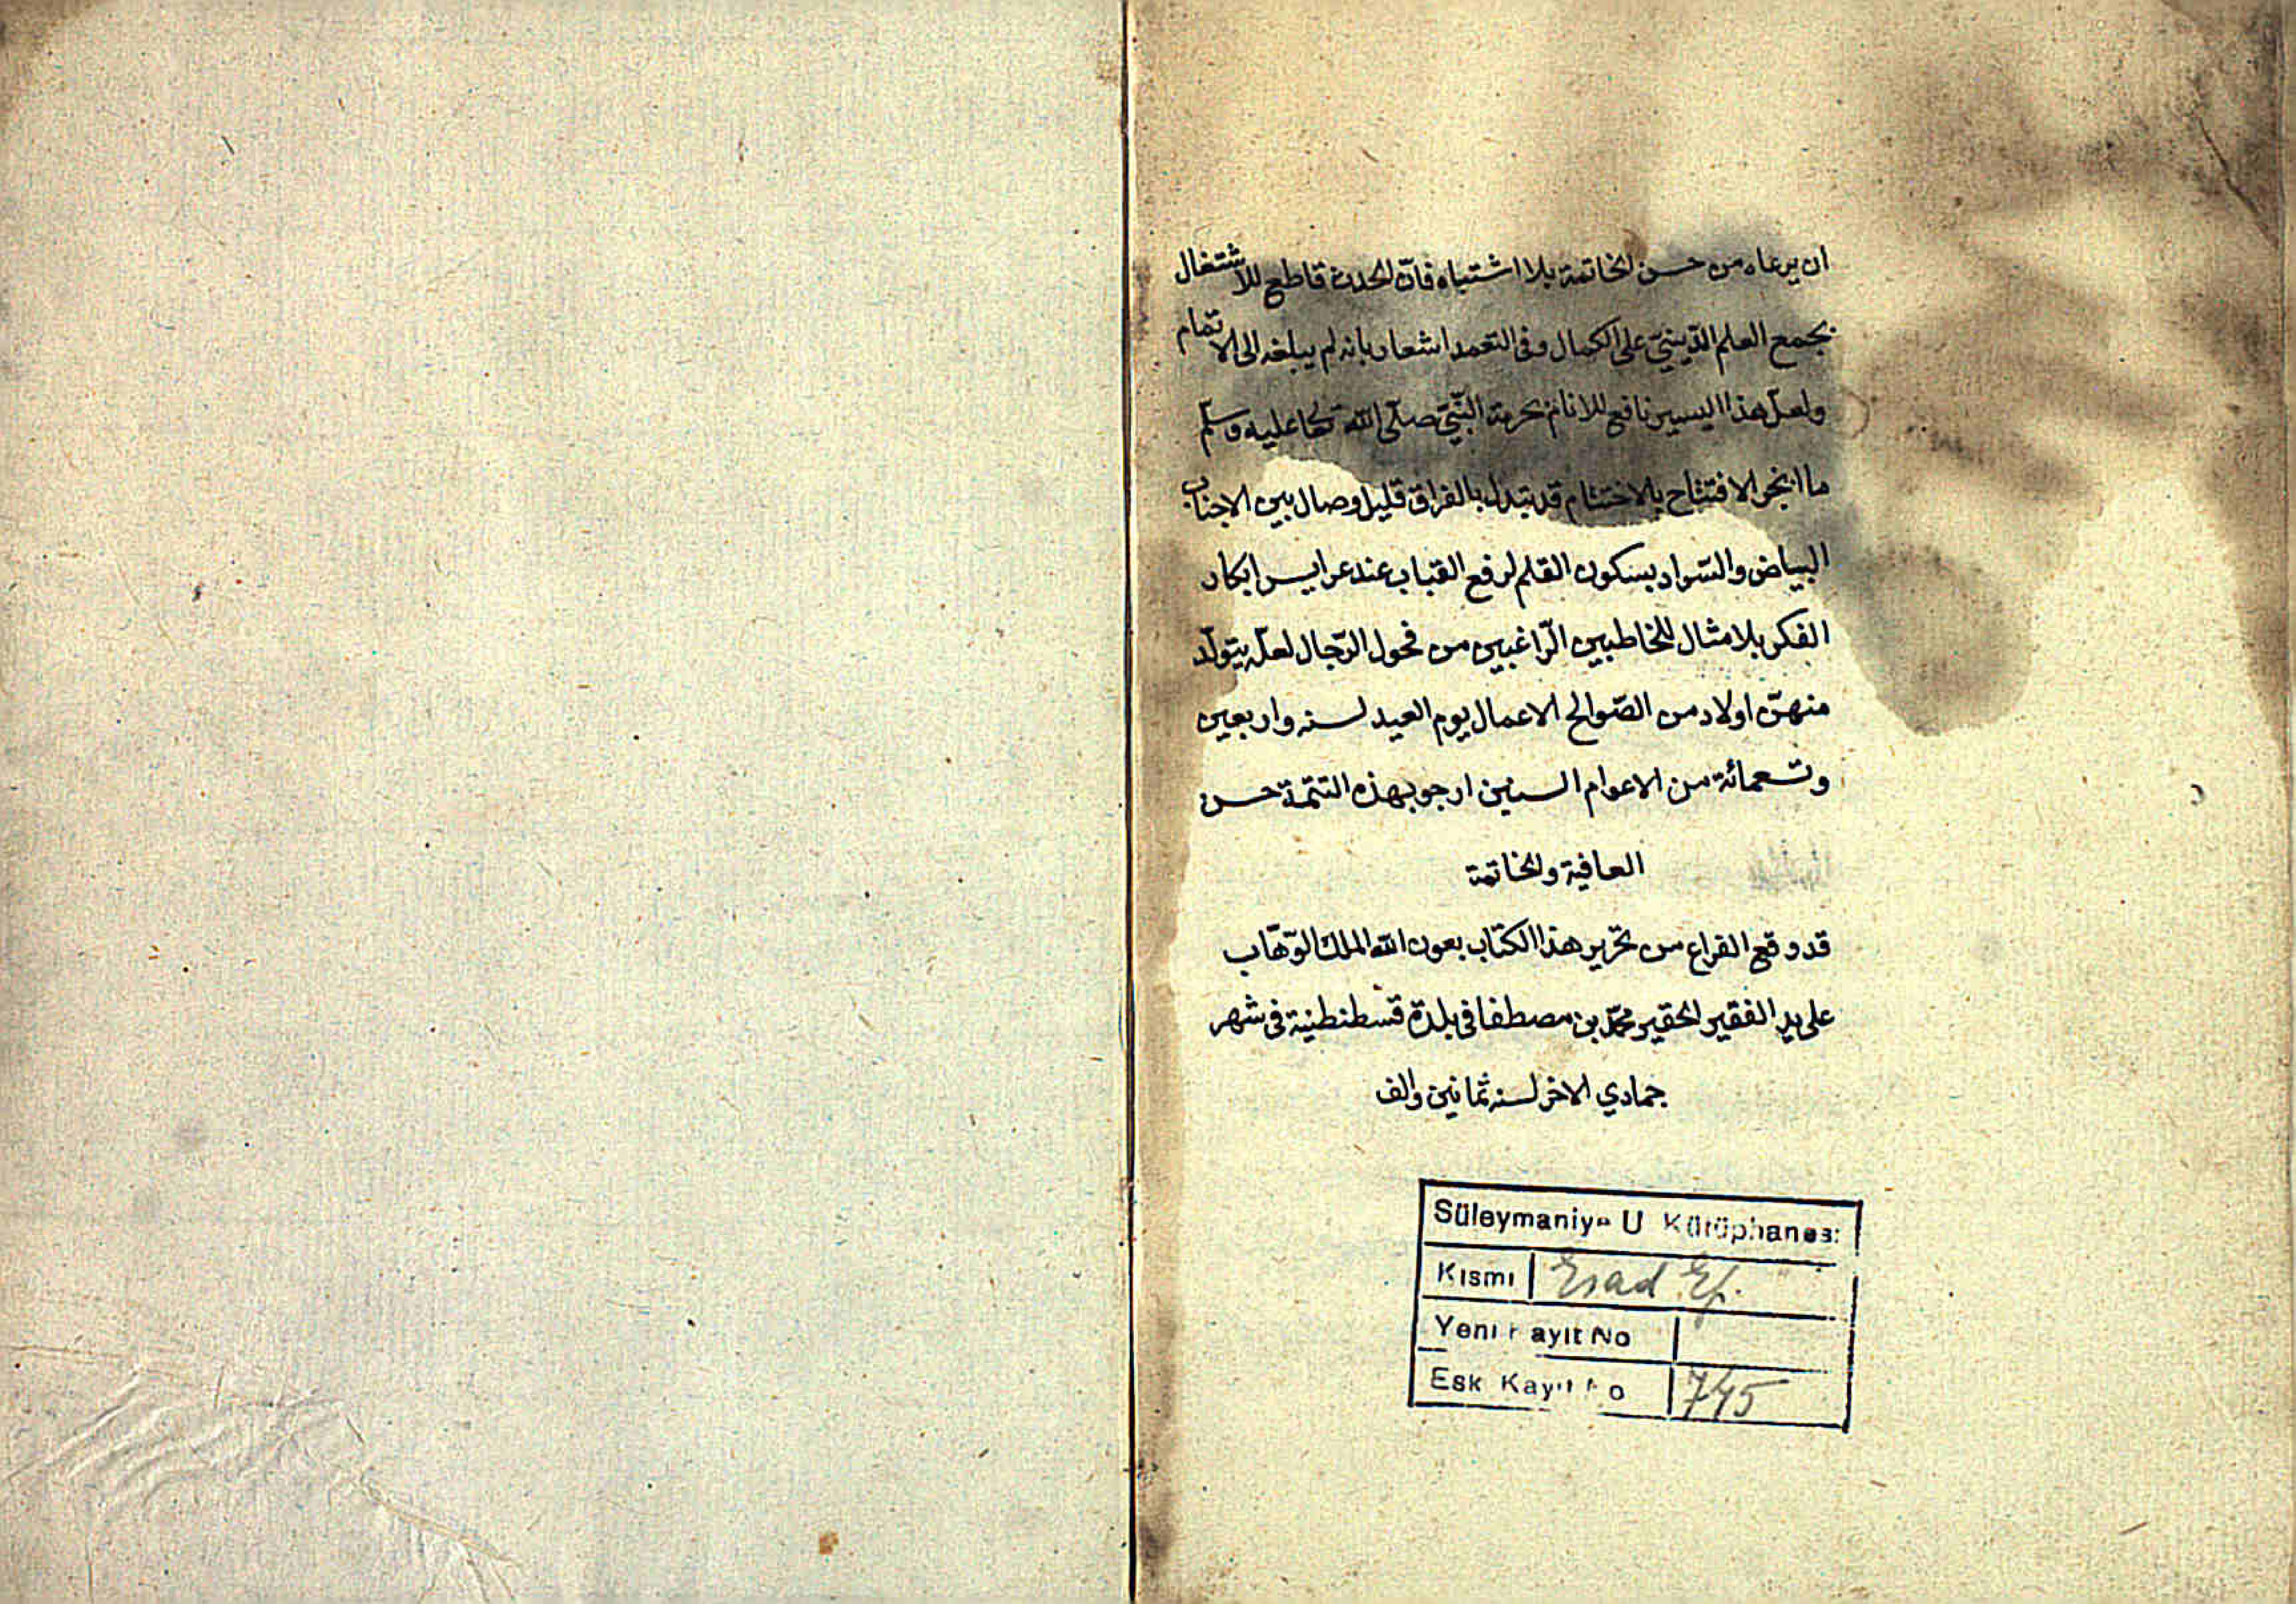 ان يرعاه من حسن الخاتمة بلا اشتباه فان الحدث قاطع للاشتغال
بجمع العلم الدّينيّ على الكمال وفى التعمد اشعار بانه لم يبلغه الى الاتمام
ولعلّ هذا اليسير نافع للانام بحرمة النّبيّ صلّى الله تعالى عليه وسلّم
ما انجر الافتتاح بالاختتام قد تبدل بالفراق قليل وصال بين
البياض والسّواد بسكون القلم لرفع القباب عند عرايس ابكار
الفكر بلا مثال للخاطبين الرّاغبين من فحول الرّجال لعلّه يتولّد
منهنّ اولاد من الصّوالح الاعمال يوم العيد لسنه واربعين
وتسعمائة من الاعوام السنين ارجو بهذه التتمّة حسن
العافية والخاتمة
قد وقع الفراغ من تحرير هذا الكتاب بعون الله الملك الوهّاب
على يد الفقير الحقير محمّد بن مصطفا فى بلدة قسطنطنية فى شهر
جمادي الاخر لسنه ثمانين والف
Süleymaniye U Kütüphanesi
Kısmı Esad Ef.
Yeni Kayıt No
Eski Kayıt No 745